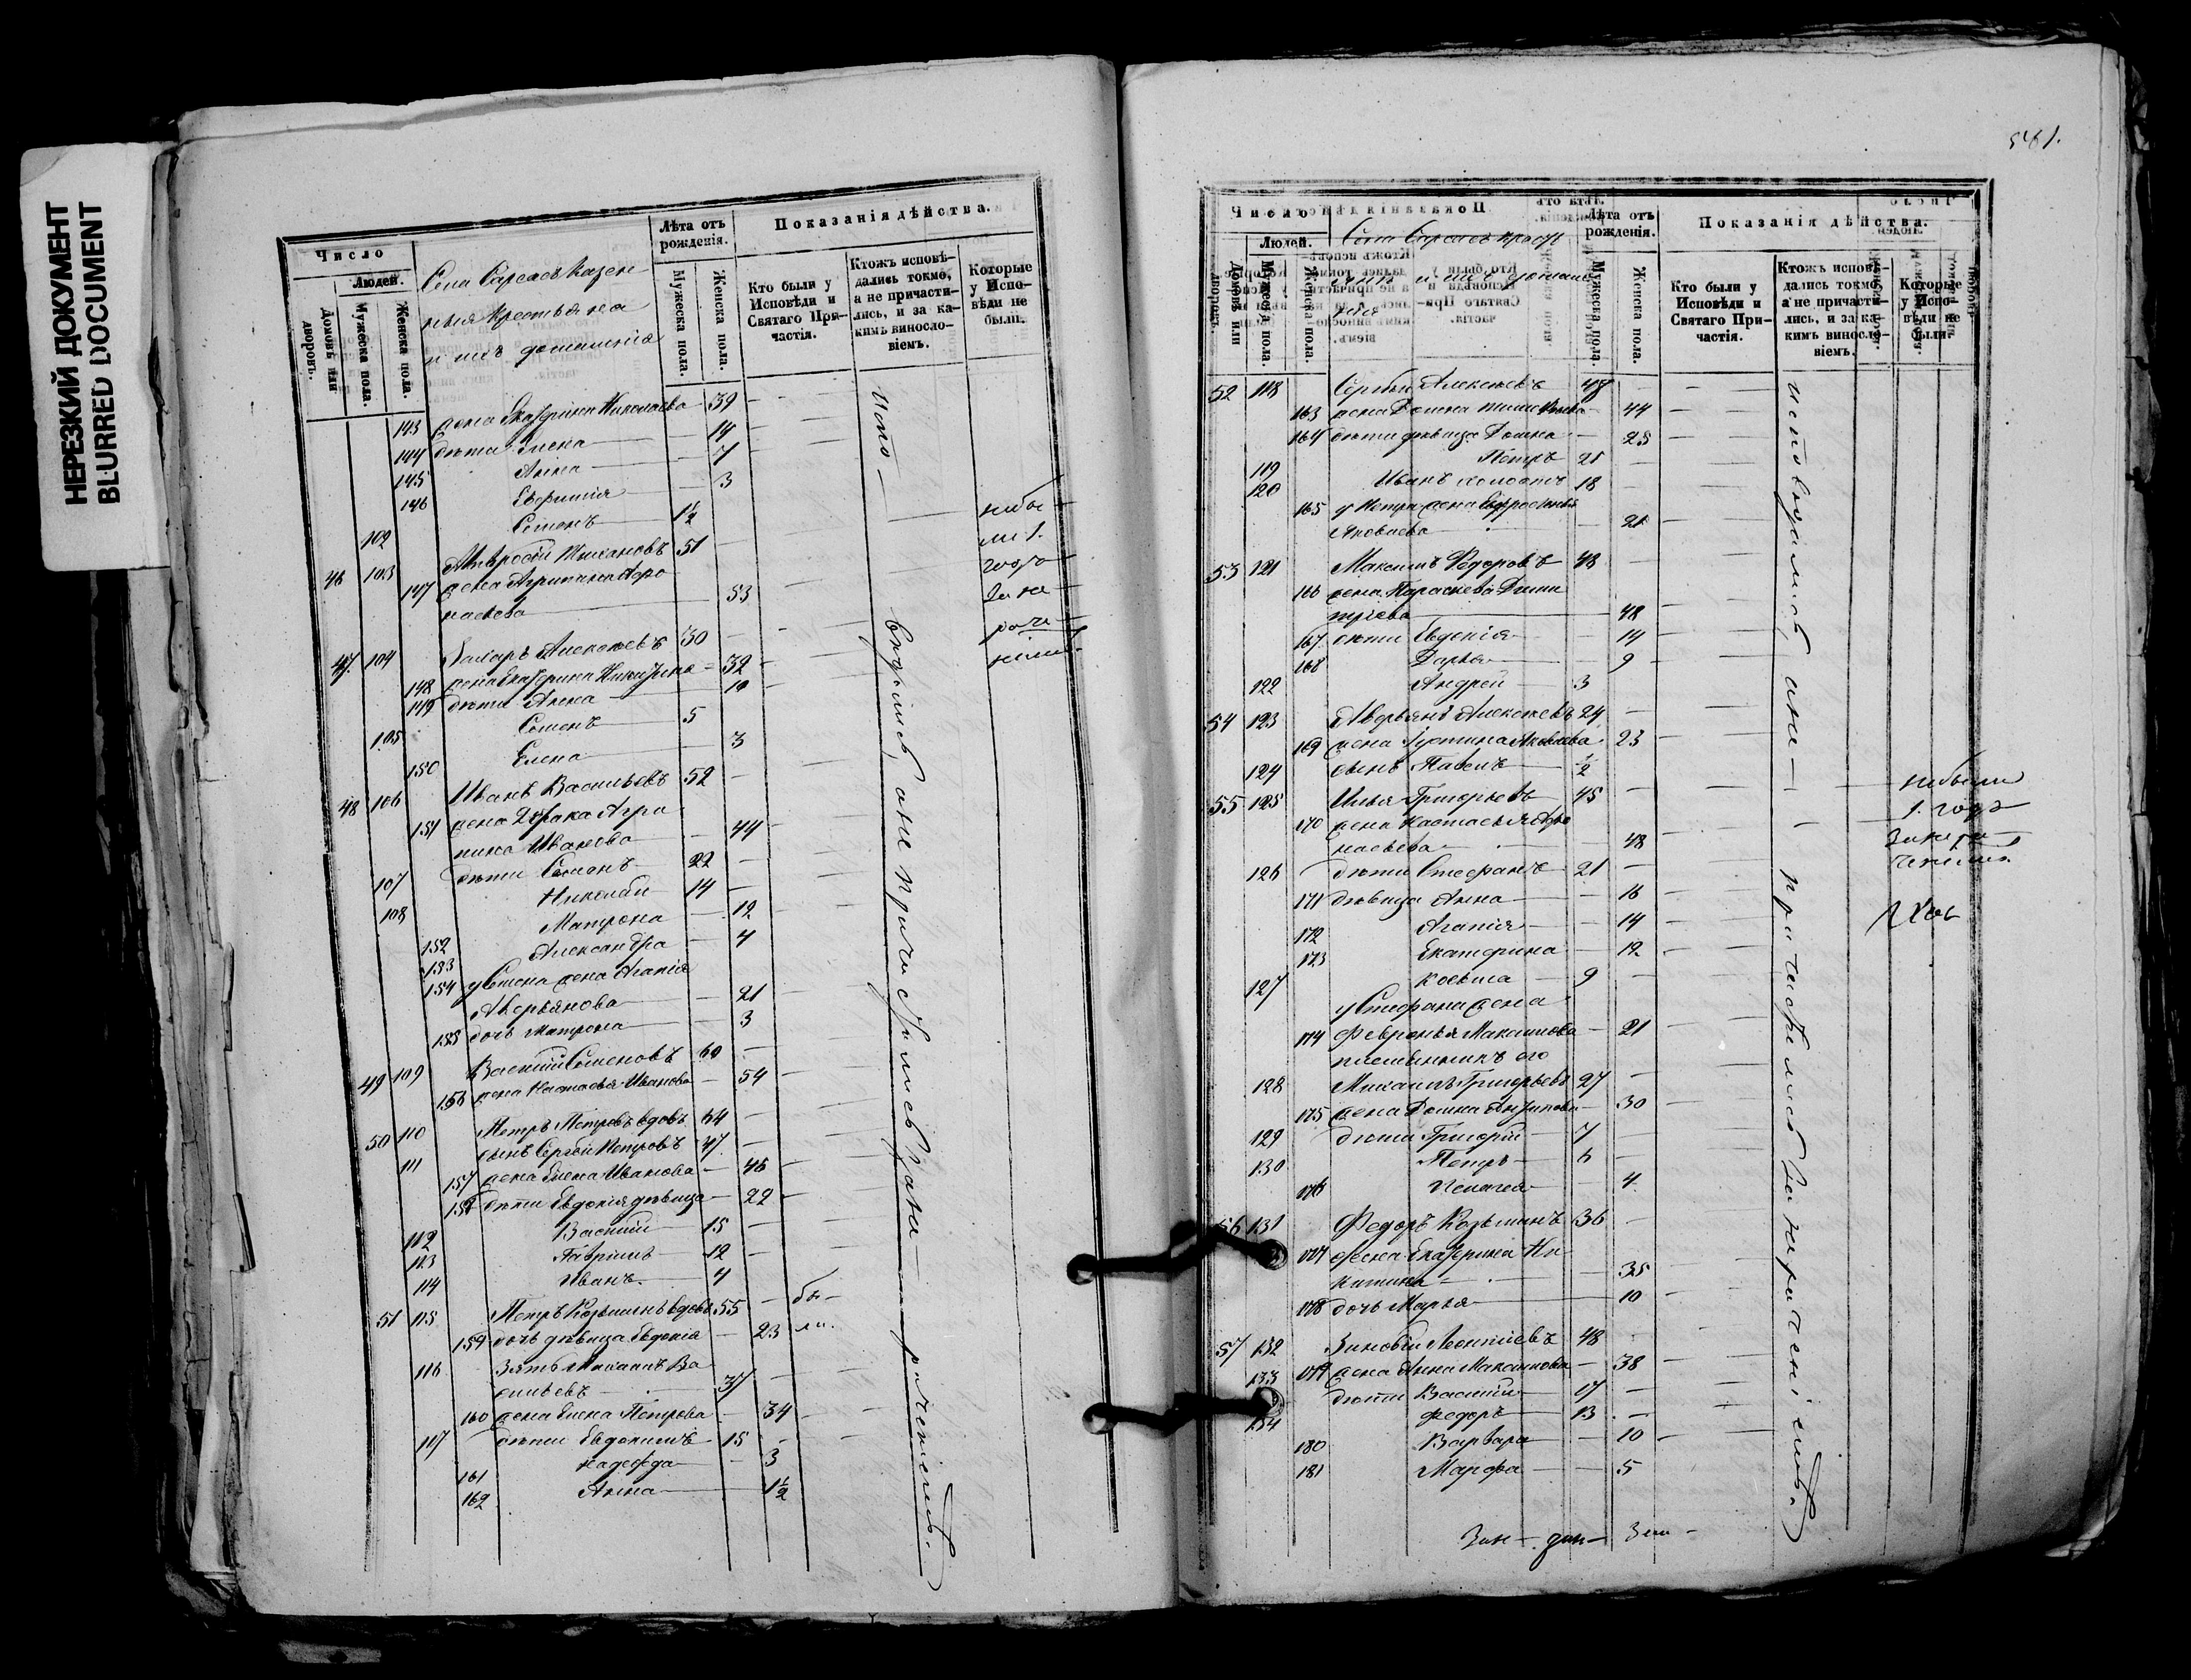 НЕРЕЗКИЙ ДОКУМЕНТ
BLURRED DOCUMENT
Число
Людей.
Домовъ или дворовъ.
Мужеска пола.
Женска пола.
Села Сарсасъ Казен
ныя Крестьяна
и ихъ домашнія
Лѣта отъ рожденія.
Мужеска пола.
Женска пола.
Показанія дѣйства.
Кто были у Исповѣди и Святаго Причастія.
Ктожъ исповѣдались токмо, а не причастились, и за какимъ винословіемъ.
Которые у Исповѣди не были.
143 жена Екатерина Николаева 39
144 дѣти Елена 14
145 Анна 7
146 Евфимія 3
102 Семенъ 1½
46 103 Амвросій 51
147 жена Агрипина Афо
насьева 53
47 104 Захаръ Алексѣевъ 30
148 жена Екатерина 32
149 дѣти Анна 10
105 Семенъ 5
150 Елена 3
48 106 Иванъ Васильевъ 52
151 жена 2 брака Агри
пина Иванова 44
107 дѣти Семенъ 22
108 Николай 14
152 Матрона 12
153 Александра 4
154 у Семена жена Агапія
Аверьянова 21
155 дочь Матрона 3
49 109 Василій Семеновъ 60
156 жена Настасья Иванова 54
50 110 Петръ Петровъ вдовъ 64
111 сынъ Сергей Петровъ 47
157 жена Елена Иванова 46
158 дѣти Евдокія дѣвица 22
112 Василій 15
113 Гавріилъ 12
114 Иванъ 4
51 115 Петръ Козьминъ вдовъ 55
159 дочь дѣвица Евдокія 23
бы-
ли.
116 Зять Михаилъ Ва
сильевъ 37
160 жена Елена Петрова 34
117 дѣти Евдокимъ 15
161 Надежда 3
162 Анна 1½
испо-
вѣдались, а не причастились за не-
раченіемъ.
небы-
ли 1.
годъ
За не-
раче-
ніемъ.
541.
Число
Людей.
Домовъ или дворовъ.
Мужеска пола
Женска пола
Села Сарсасъ крест
и ихъ домаш
нія
Лѣта отъ рожденія.
Мужеска пола.
Женска пола.
Показанія дѣйства.
Кто были у Исповѣди и Святаго Причастія.
Ктожъ исповѣдались токмо, а не причастились, и за какимъ винословіемъ.
Которые у Исповѣди не были.
52 118 Сергѣй Алексѣевъ 47
163 жена Домна 44
164 дѣти дѣвица Домна 25
119 Петръ 21
120 Иванъ холостъ 18
165 у Петра жена Евфросинья
Яковлева 21
53 121 Максимъ Федоровъ 48
166 жена Параскева Дими
тріева 48
167 дѣти Евдокія 14
168 Дарья 9
122 Андрей 3
54 123 Аверьянъ Алексѣевъ 24
169 жена Устина Яковлева 23
124 сынъ Павелъ ½
55 125 Илья Григорьевъ 45
170 жена Настасья Афо
насьева 48
126 дѣти Стефанъ 21
171 дѣвица Анна 16
172 Агапія 14
173 Екатерина 12
127 Козьма 9
у Стефана жена
174 Февронья Максимова 21
племянникъ его
128 Михаилъ Григорьевъ 27
175 жена Домна Антипова 30
129 дѣти Григорій 7
130 Петръ 6
176 Пелагея 4
56 131 Федоръ Козьминъ 36
177 жена Екатерина Ни
китина 35
178 дочь Марья 10
57 132 Зиновій Леонтіевъ 48
179 жена Анна Максимова 38
133 дѣти Василій 17
134 Федоръ 13
180 Варвара 10
181 Марфа 5
исповѣдались, а не
причастились за нераченіемъ.
небыли
1. годъ
За нера
ченіемъ